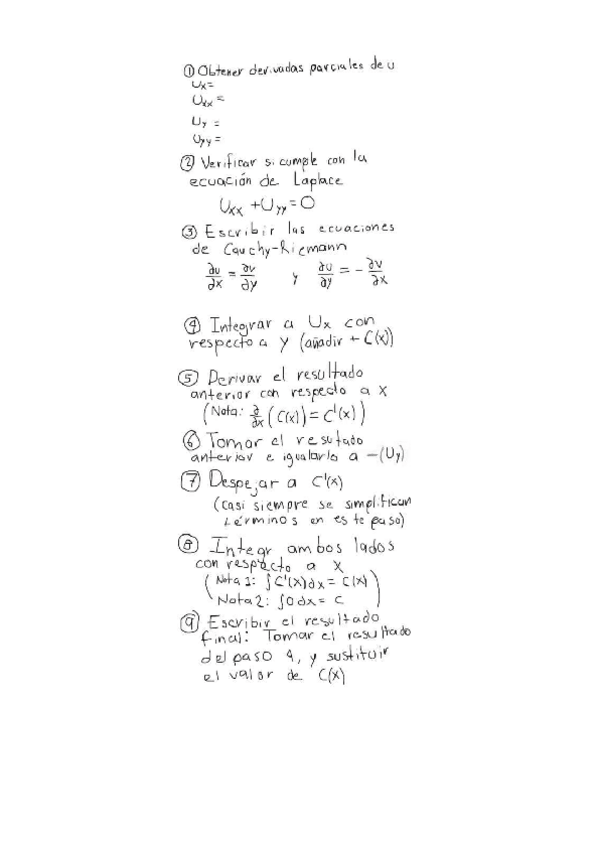 ① Obtener derivadas parciales de u
Ux=
Uxx =
Uy =
Uyy =
② Verificar si cumple con la
ecuación de Laplace
Uxx + Uyy = 0
③ Escribir las ecuaciones
de Cauchy-Riemann
∂u/∂x = ∂v/∂y y ∂u/∂y = - ∂v/∂x
④ Integrar a Ux con
respecto a y (añadir + C(x))
⑤ Derivar el resultado
anterior con respecto a x
(Nota: ∂/∂x (C(x)) = C'(x))
⑥ Tomar el resutado
anterior e igualarlo a -(Uy)
⑦ Despejar a C'(x)
(casi siempre se simplifican
términos en este paso)
⑧ Integr ambos lados
con respecto a x
(Nota 1: ∫C'(x)dx = C(x)
Nota 2: ∫0dx = C)
⑨ Escribir el resultado
final: Tomar el resultado
del paso 4, y sustituir
el valor de C(x)